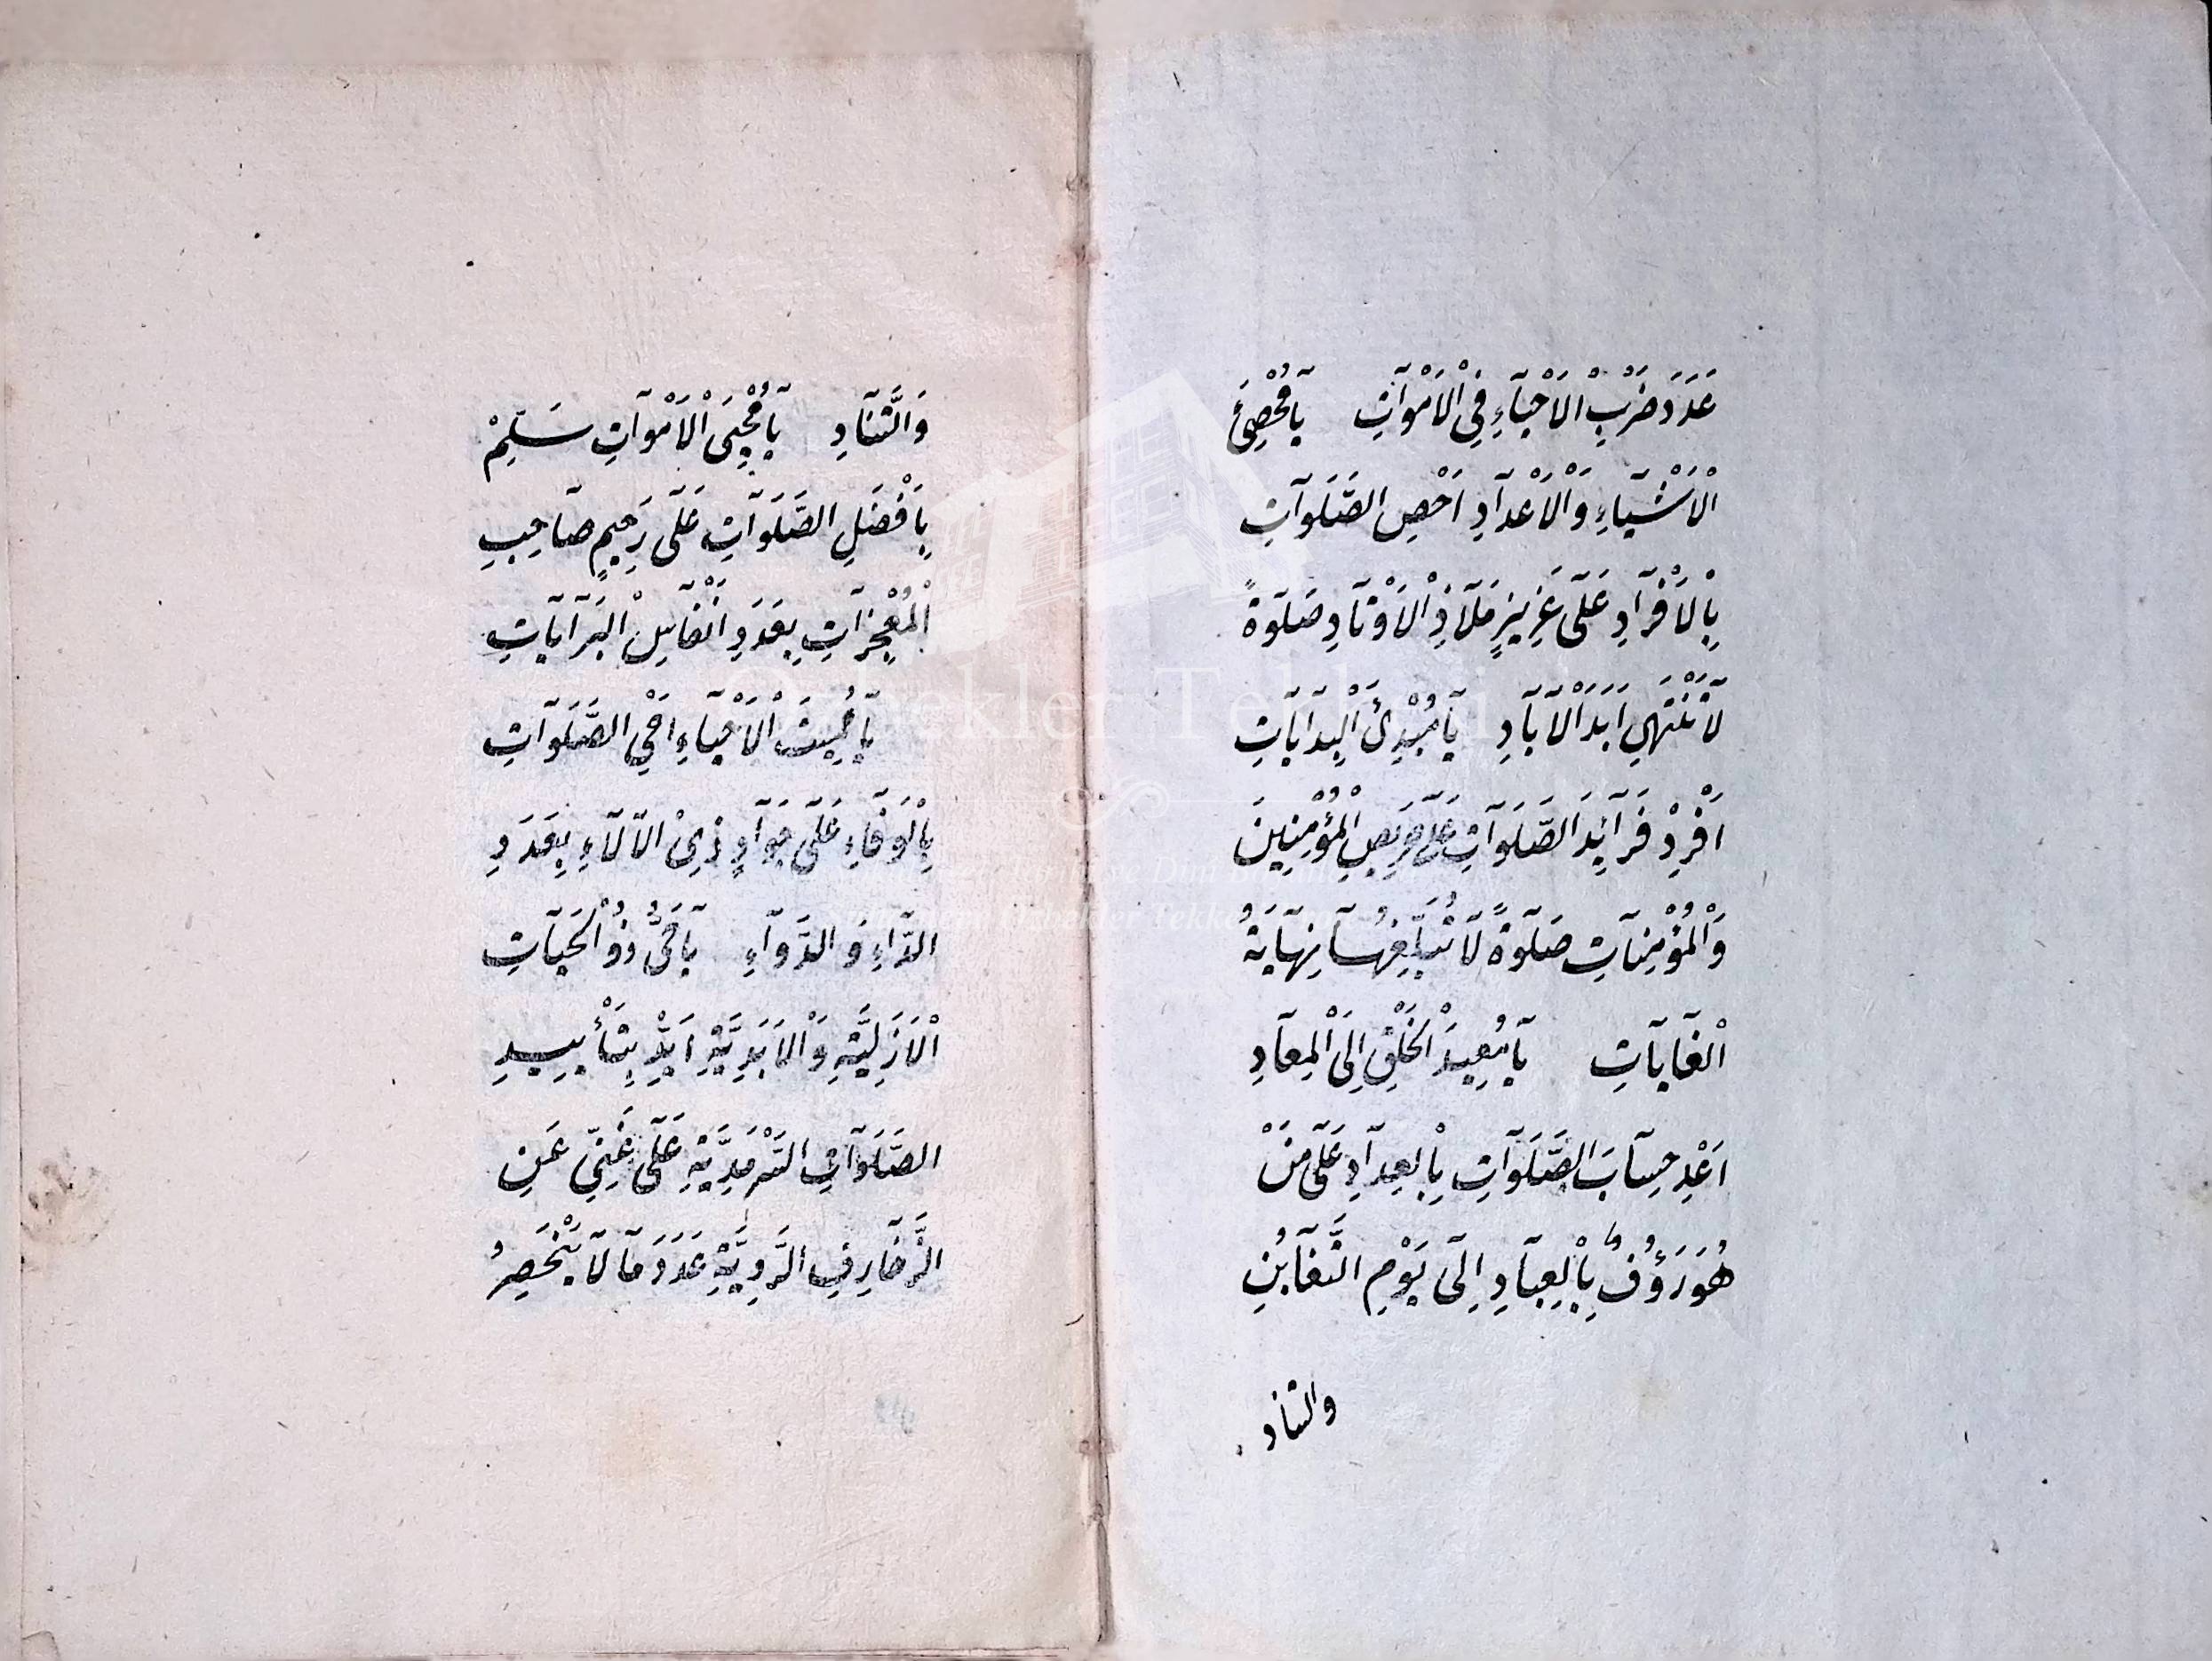 عَدَدَ ضَرْبِ الْاَحْيَآءِ فِي الْاَمْوَآتِ يَآ مُحْصِيَ
الْاَشْيَآءِ وَالْاَعْدَآدِ اَحْصِ الصَّلَوَآتِ
بِالْاَفْرَآدِ عَلَى عَزِيزٍ مَلَآذِ الْاَوْتَآدِ صَلَوةً
لَآ تَنْتَهِي اَبَدَ الْآبَآدِ يَآ مُبْدِئَ الْبِدَآيَآتِ
اَفْرِدْ فَرَآئِدَ الصَّلَوَآتِ عَلَى حَرِيصِ الْمُؤْمِنِينَ
وَالْمُؤْمِنَآتِ صَلَوةً لَآ تُبَلِّغُهَآ نِهَآيَةُ
الْغَآيَآتِ يَآ مُعِيدَ الْخَلْقِ اِلَى الْمِعَآدِ
اَعْدِ حِسَآبَ الصَّلَوَآتِ بِالْعِدَآدِ عَلَى مَنْ
هُوَ رَؤُفٌ بِالْعِبَآدِ اِلَى يَوْمِ التَّغَآبُنِ
والتناد
وَالتَّنَآدِ يَآ مُحْيِيَ الْاَمْوَآتِ سَلِّمْ
بِاَفْضَلِ الصَّلَوَآتِ عَلَى رَحِيمٍ صَآحِبِ
الْمُعْجِزَآتِ بِعَدَدِ اَنْفَآسِ الْبَرَآيَآتِ
يَآ مُمِيتَ الْاَحْيَآءِ اَحْيِ الصَّلَوَآتِ
بِالْوَفَآءِ عَلَى جَوَآدٍ ذِي الْآلَآءِ بِعَدَدِ
الدَّآءِ وَالدَّوَآءِ يَآ حَيُّ ذُو الْحَيَآتِ
الْاَزَلِيَّةِ وَالْاَبَدِيَّةِ اَيِّدْ بِتَأْبِيدِ
الصَّلَوَآتِ السَّرْمَدِيَّةِ عَلَى غَنِيٍّ عَنِ
الزَّخَآرِفِ الرَّدِيَّةِ عَدَدَ مَآ لَآ يَنْحَصِرُ